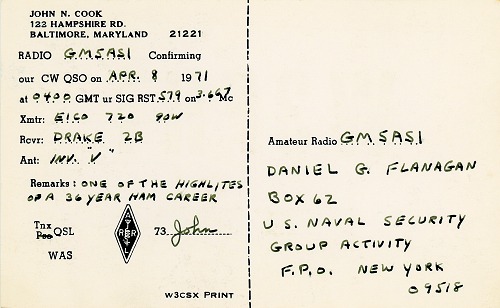 JOHN N. COOK
123 HAMPSHIRE RD.
BALTIMORE, MARYLAND 21221
RADIO GM5ASI Confirming
our CW QSO on APR. 8 1971
at 0400 GMT ur SIG RST 579 on 3.667 Mc
Xmtr: EICO 720 90W
Rcvr: DRAKE 2B
Ant: INV. "V"
Remarks: ONE OF THE HIGHLITES
OF A 36 YEAR HAM CAREER
Tnx
Pse QSL 73, John
WAS
W3CSX PRINT
Amateur Radio GM5ASI
DANIEL G. FLANAGAN
BOX 62
U.S. NAVAL SECURITY
GROUP ACTIVITY
F.P.O. NEW YORK
09518